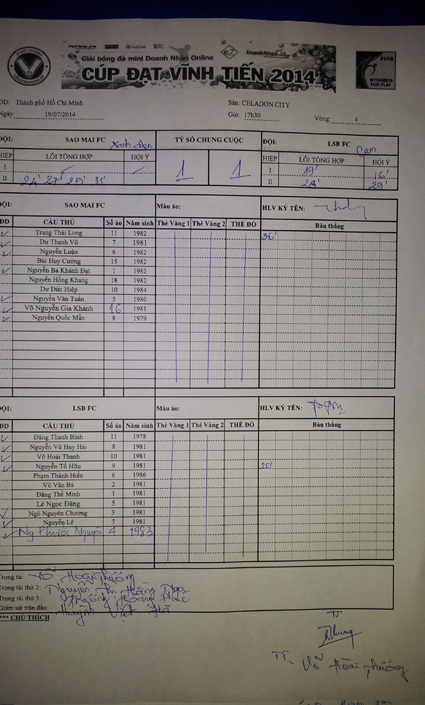 Giải bóng đá mini Doanh Nhân Online
CÚP ĐẠT VĨNH TIẾN 2014
FIFA
MY GAME IS FAIR PLAY
DD: Thành phố Hồ Chí Minh Sân: CELADON CITY
Ngày: 19/07/2014 Giờ: 17h30 Vòng: 4
ĐỘI: SAO MAI FC Xanh đen TỶ SỐ CHUNG CUỘC ĐỘI: LSB FC Cam
HIỆP LỖI TỔNG HỢP HỘI Ý 1 1 HIỆP LỖI TỔNG HỢP HỘI Ý
I I 19'
II 24' 27' 33' II 28' 16' 29'
ĐỘI: SAO MAI FC Màu áo: HLV KÝ TÊN:
DD CẦU THỦ Số áo Năm sinh Thẻ Vàng 1 Thẻ Vàng 2 THẺ ĐỎ Bàn thắng
Trang Thái Long 11 1982 36'
Dư Thanh Vũ 7 1981
Nguyễn Luận 6 1982
Bùi Huy Cường 15 1982
Nguyễn Bá Khánh Đạt 1 1982
Nguyễn Hồng Khang 18 1982
Dư Đức Hiệp 10 1984
Nguyễn Văn Tuấn 5 1980
Võ Nguyễn Gia Khánh 16 1981
Nguyễn Quốc Mẫn 8 1979
ĐỘI: LSB FC Màu áo: HLV KÝ TÊN:
DD CẦU THỦ Số áo Năm sinh Thẻ Vàng 1 Thẻ Vàng 2 THẺ ĐỎ Bàn thắng
Đặng Thanh Bình 11 1978
Nguyễn Vũ Huy Hải 8 1981
Võ Hoài Thanh 10 1981
Nguyễn Tố Hữu 9 1981
Phạm Thành Hiển 6 1986
Vũ Văn Bá 2 1981
Đặng Thế Minh 1 1981
Lê Ngọc Đăng 5 1981
Ngô Nguyên Chương 3 1981
Nguyễn Lê 7 1981
Ng Phước Nguyên 4 1983
Trọng tài: Võ Hoài Phương
Trọng tài thứ 2: Nguyễn Thị Hằng Nga
Trọng tài thứ 3: Trương Hoàng Phúc
Giám sát trận đấu: Huỳnh Việt
*** CHÚ THÍCH
TT
TT. Võ Hoài Phương